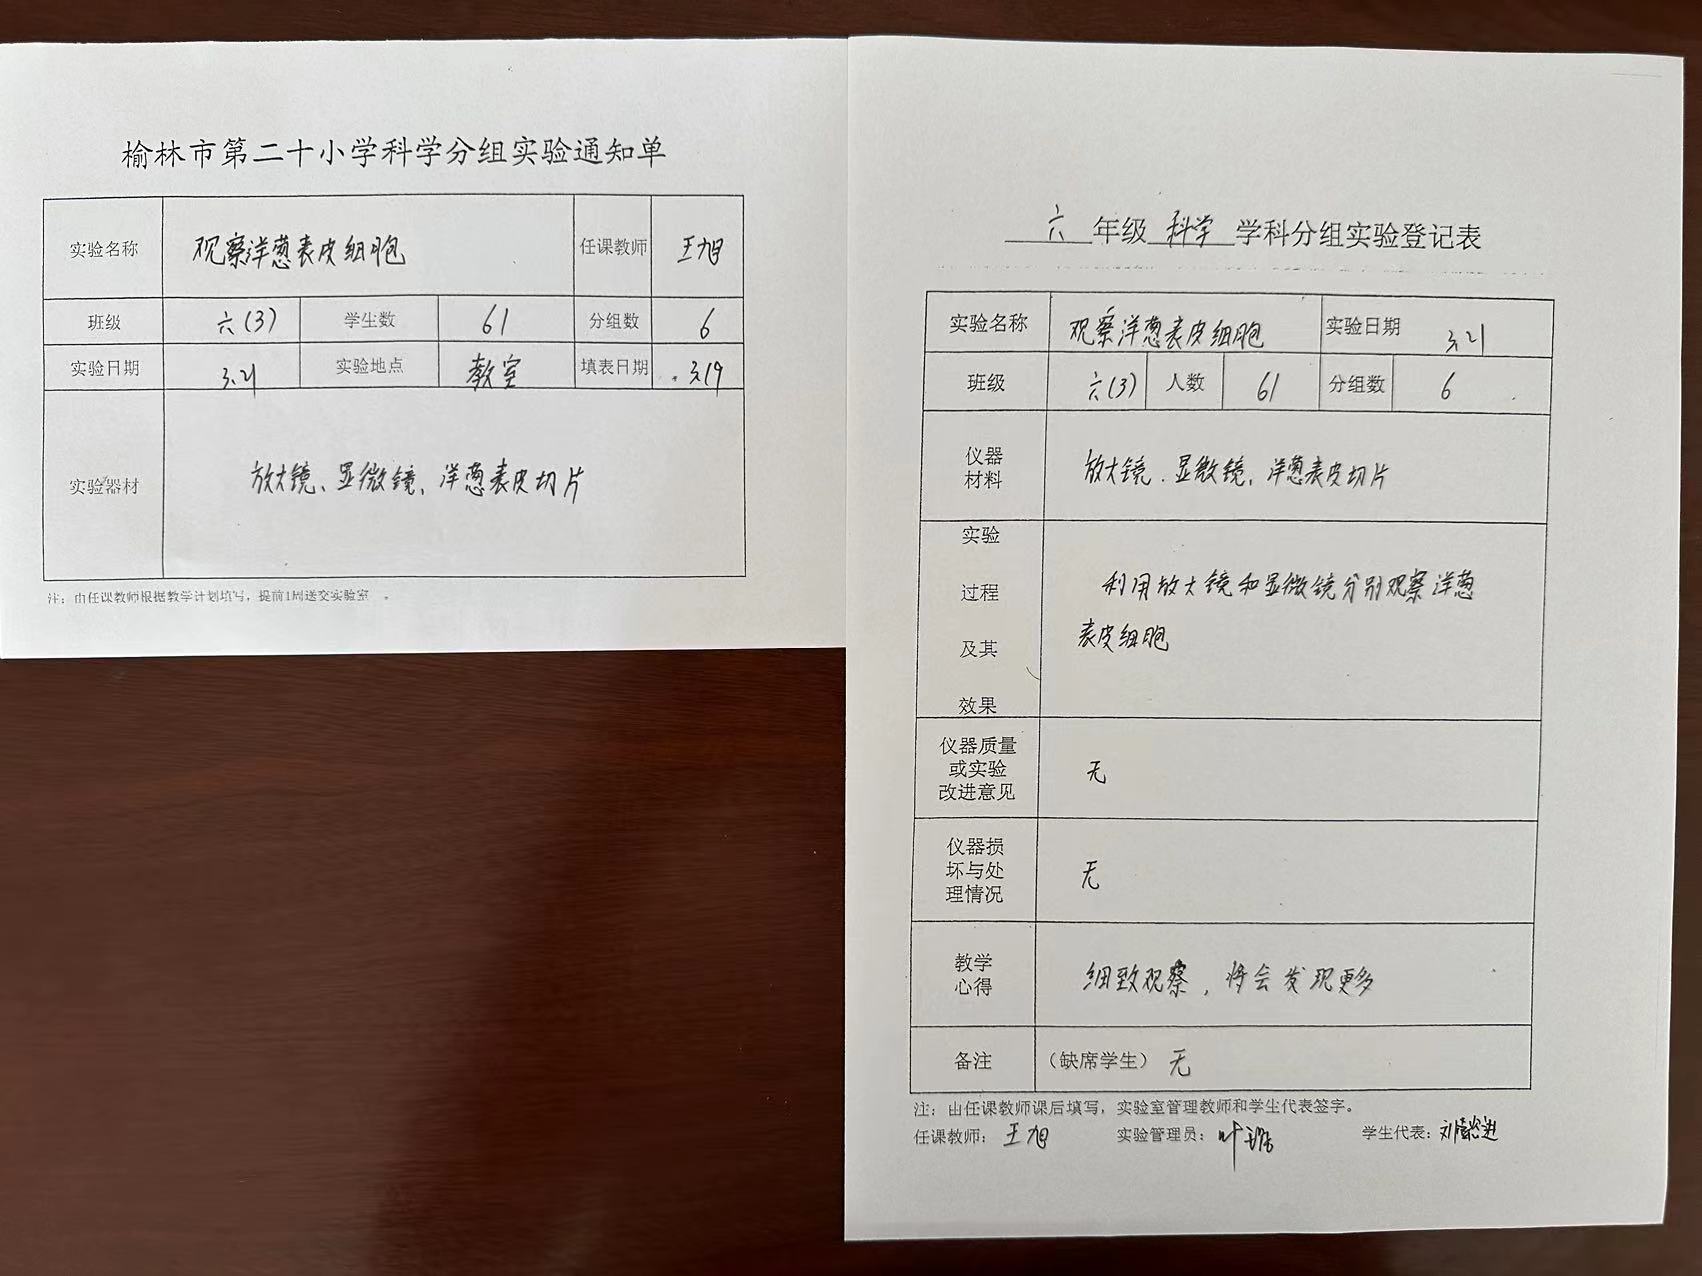 榆林市第二十小学科学分组实验通知单
实验名称 观察洋葱表皮细胞 任课教师 王旭
班级 六(3) 学生数 61 分组数 6
实验日期 3.21 实验地点 教室 填表日期 3.19
实验器材 放大镜、显微镜、洋葱表皮切片
注：由任课教师根据教学计划填写，提前1周送交实验室 。
六 年级 科学 学科分组实验登记表
实验名称 观察洋葱表皮细胞 实验日期 3.21
班级 六(3) 人数 61 分组数 6
仪器
材料
放大镜、显微镜、洋葱表皮切片
实验
过程
及其
效果
利用放大镜和显微镜分别观察洋葱
表皮细胞
仪器质量
或实验
改进意见
无
仪器损
坏与处
理情况
无
教学
心得
细致观察，将会发现更多
备注 （缺席学生） 无
注：由任课教师课后填写，实验室管理教师和学生代表签字。
任课教师：王旭 实验管理员：叶 学生代表：刘